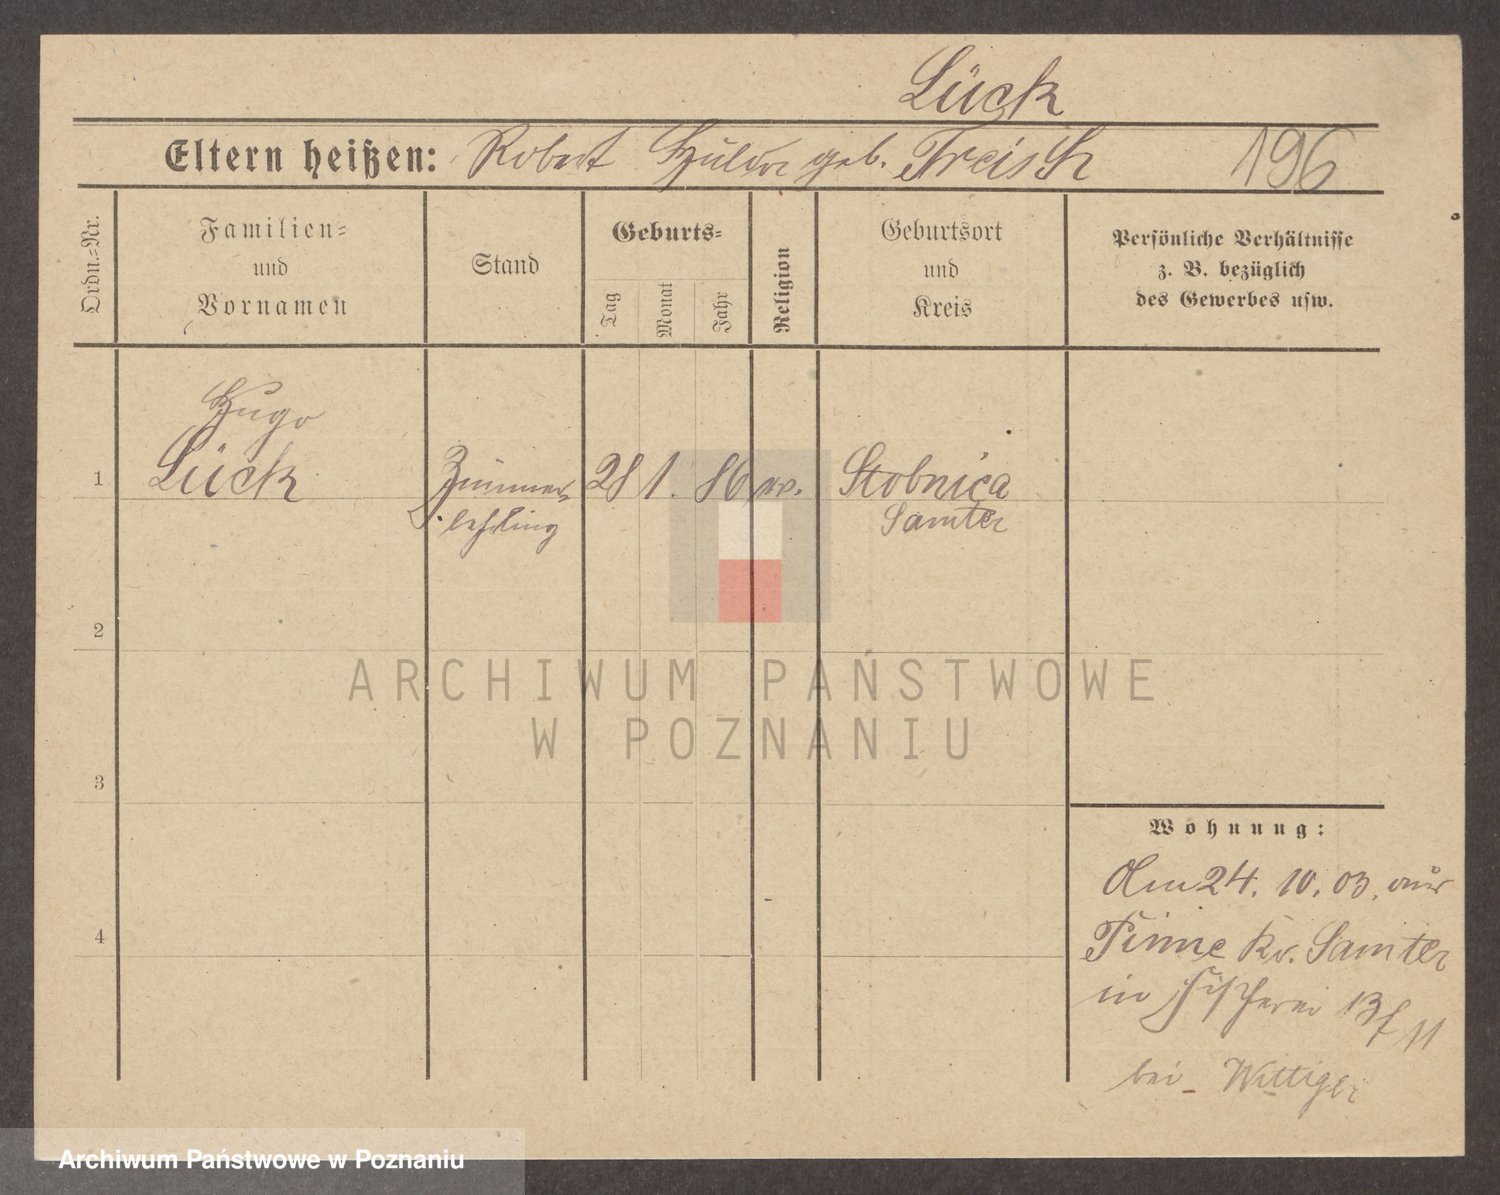 Lück
Eltern heißen: Robert Hulda geb. Freisch 196
Ordn.-Nr.
Familien-
und
Vornamen
Stand
Geburts-
Tag
Monat
Jahr
Religion
Geburtsort
und
Kreis
Persönliche Verhältnisse
z. B. bezüglich
des Gewerbes usw.
Hugo
1 Lück Zimmer- 28 1. 86 ev. Stobnica
lehrling Samter
2
3
4
ARCHIWUM PAŃSTWOWE
W POZNANIU
Wohnung:
Am 24. 10. 03. aus
Pinne Kr. Samter
in Fischerei 13 11
bei Wittiger
Archiwum Państwowe w Poznaniu